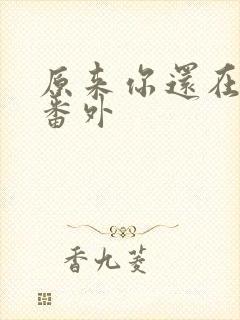 原来你還在
番外
香九菱